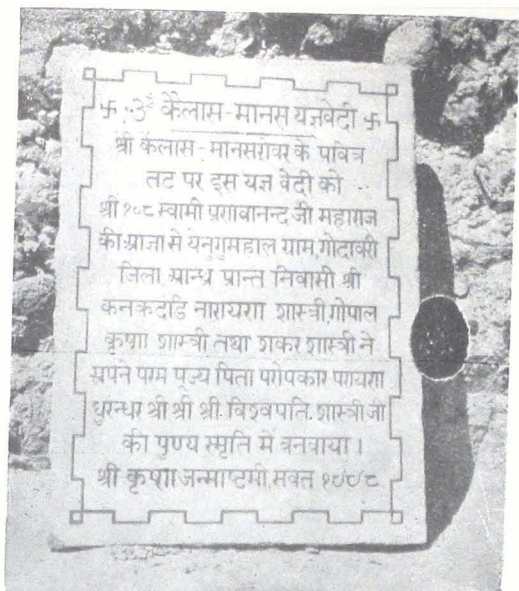 卐 ॐ कैलास-मानस यज्ञवेदी 卐
श्री कैलास-मानसरोवर के पवित्र
तट पर इस यज्ञ वेदी को
श्री १०८ स्वामी प्रणवानन्द जी महाराज
की आज्ञा से येनुगुमहाल ग्राम, गोदावरी
जिला, आन्ध्र प्रान्त निवासी श्री
कनकदंडि नारायण शास्त्री, गोपाल
कृष्ण शास्त्री तथा शंकर शास्त्री ने
अपने परम पूज्य पिता परोपकार परायण
धुरन्धर श्री श्री श्री. विश्वपति. शास्त्री जी
की पुण्य स्मृति में बनवाया।
श्री कृष्ण जन्माष्टमी, संवत